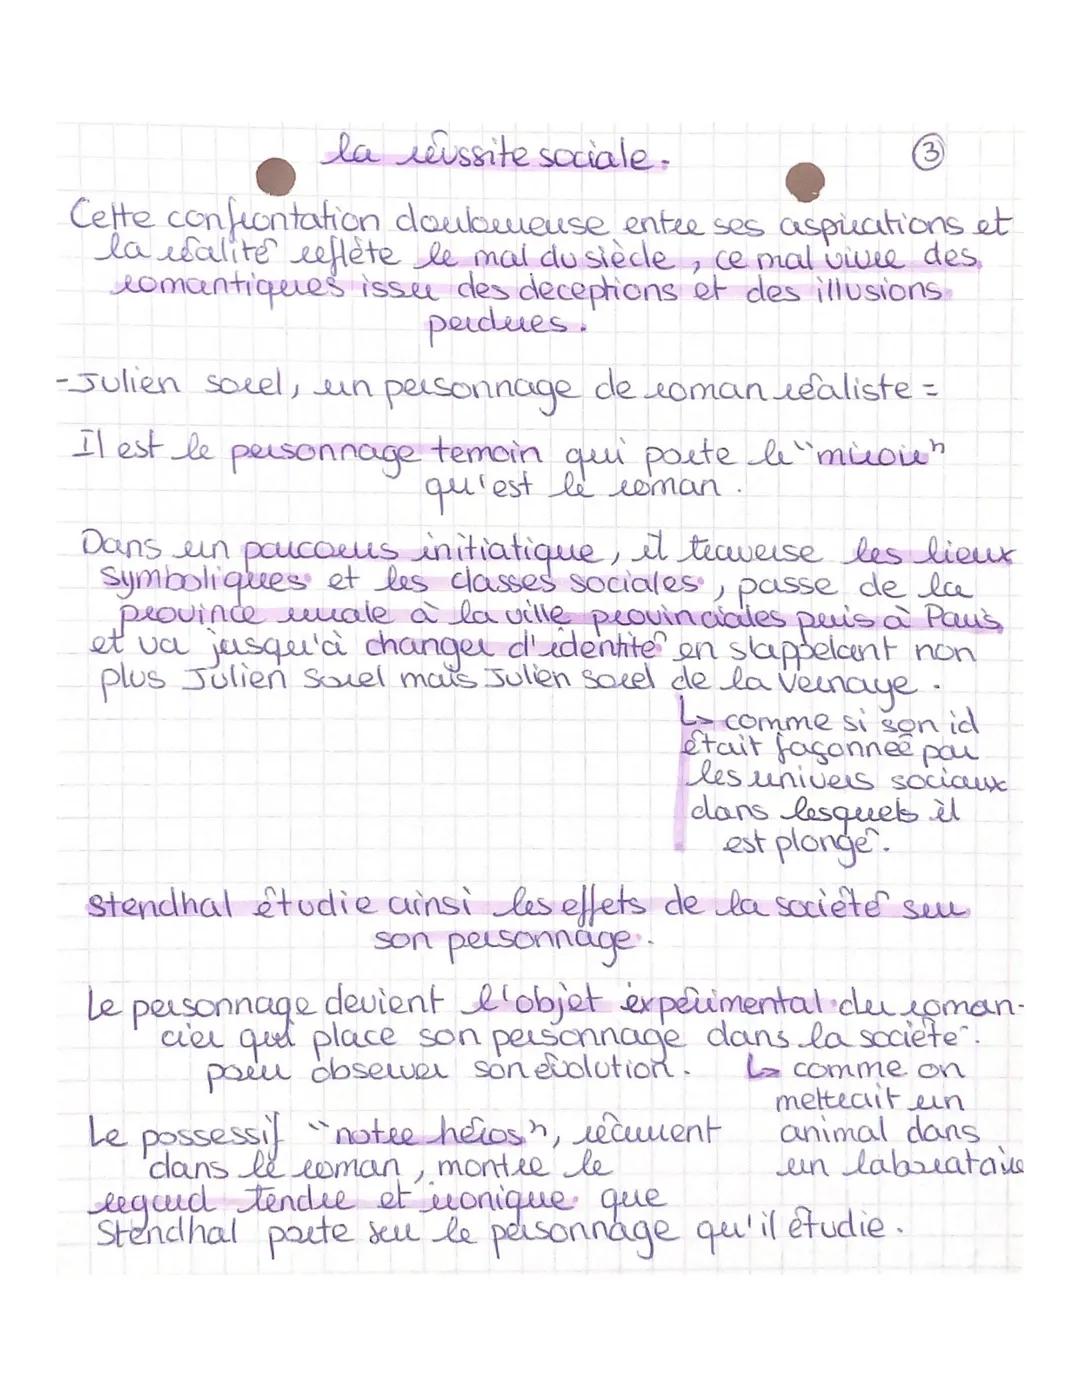 la réussite sociale.
3
Cette confrontation douloureuse entre ses aspirations et
la réalité reflète le mal du siècle, ce mal vivre des
romantiques issu des deceptions et des illusions
perdues.
- Julien Sorel, un personnage de roman réaliste =
Il est le personnage temoin qui porte le "miroir"
qu'est le roman.
Dans un parcours initiatique, il traverse les lieux
symboliques et les classes sociales, passe de la
province rurale à la ville provinciales puis à Paris
et va jusqu'à changer d'identité en s'appelant non
plus Julien Sorel mais Julien Sorel de la Vernaye.
↳ comme si son id
était façonnée par
les univers sociaux
dans lesquels il
est plongé.
Stendhal étudie ainsi les effets de la société sur
son personnage.
Le personnage devient l'objet expérimental du roman-
cier qui place son personnage dans la société
pour observer son évolution.
↳ comme on
mettrait un
animal dans
un labratoire
Le possessif "notre héros", récurrent
dans le roman, montre le
regard tendre et ironique que
Stendhal porte sur le personnage qu'il étudie.